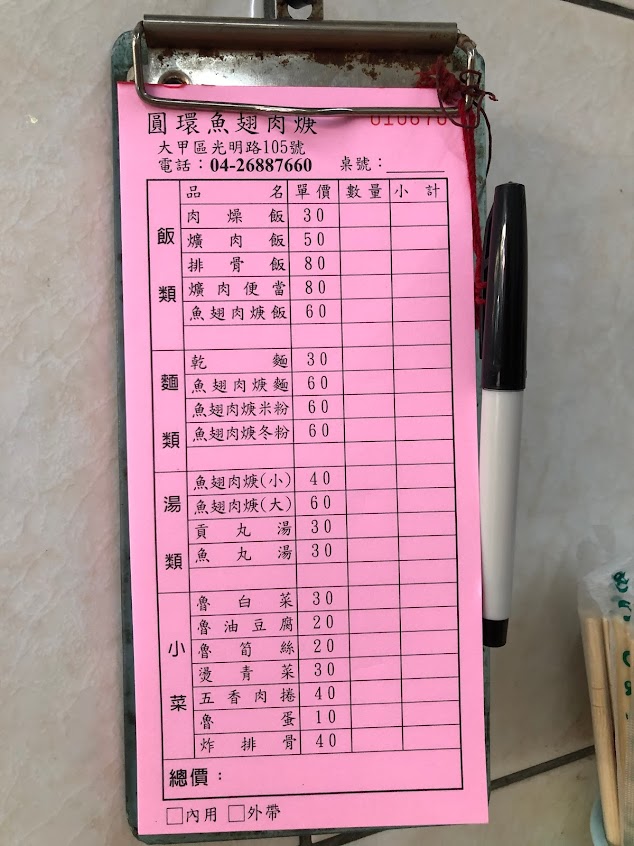 圓環魚翅肉焿
010670
大甲區光明路105號
電話：04-26887660 桌號：
品名 單價 數量 小計
飯類
肉燥飯 30
爌肉飯 50
排骨飯 80
爌肉便當 80
魚翅肉焿飯 60
麵類
乾麵 30
魚翅肉焿麵 60
魚翅肉焿米粉 60
魚翅肉焿冬粉 60
湯類
魚翅肉焿(小) 40
魚翅肉焿(大) 60
貢丸湯 30
魚丸湯 30
小菜
魯白菜 30
魯油豆腐 20
魯筍絲 20
燙青菜 30
五香肉捲 40
魯蛋 10
炸排骨 40
總價：
□內用 □外帶